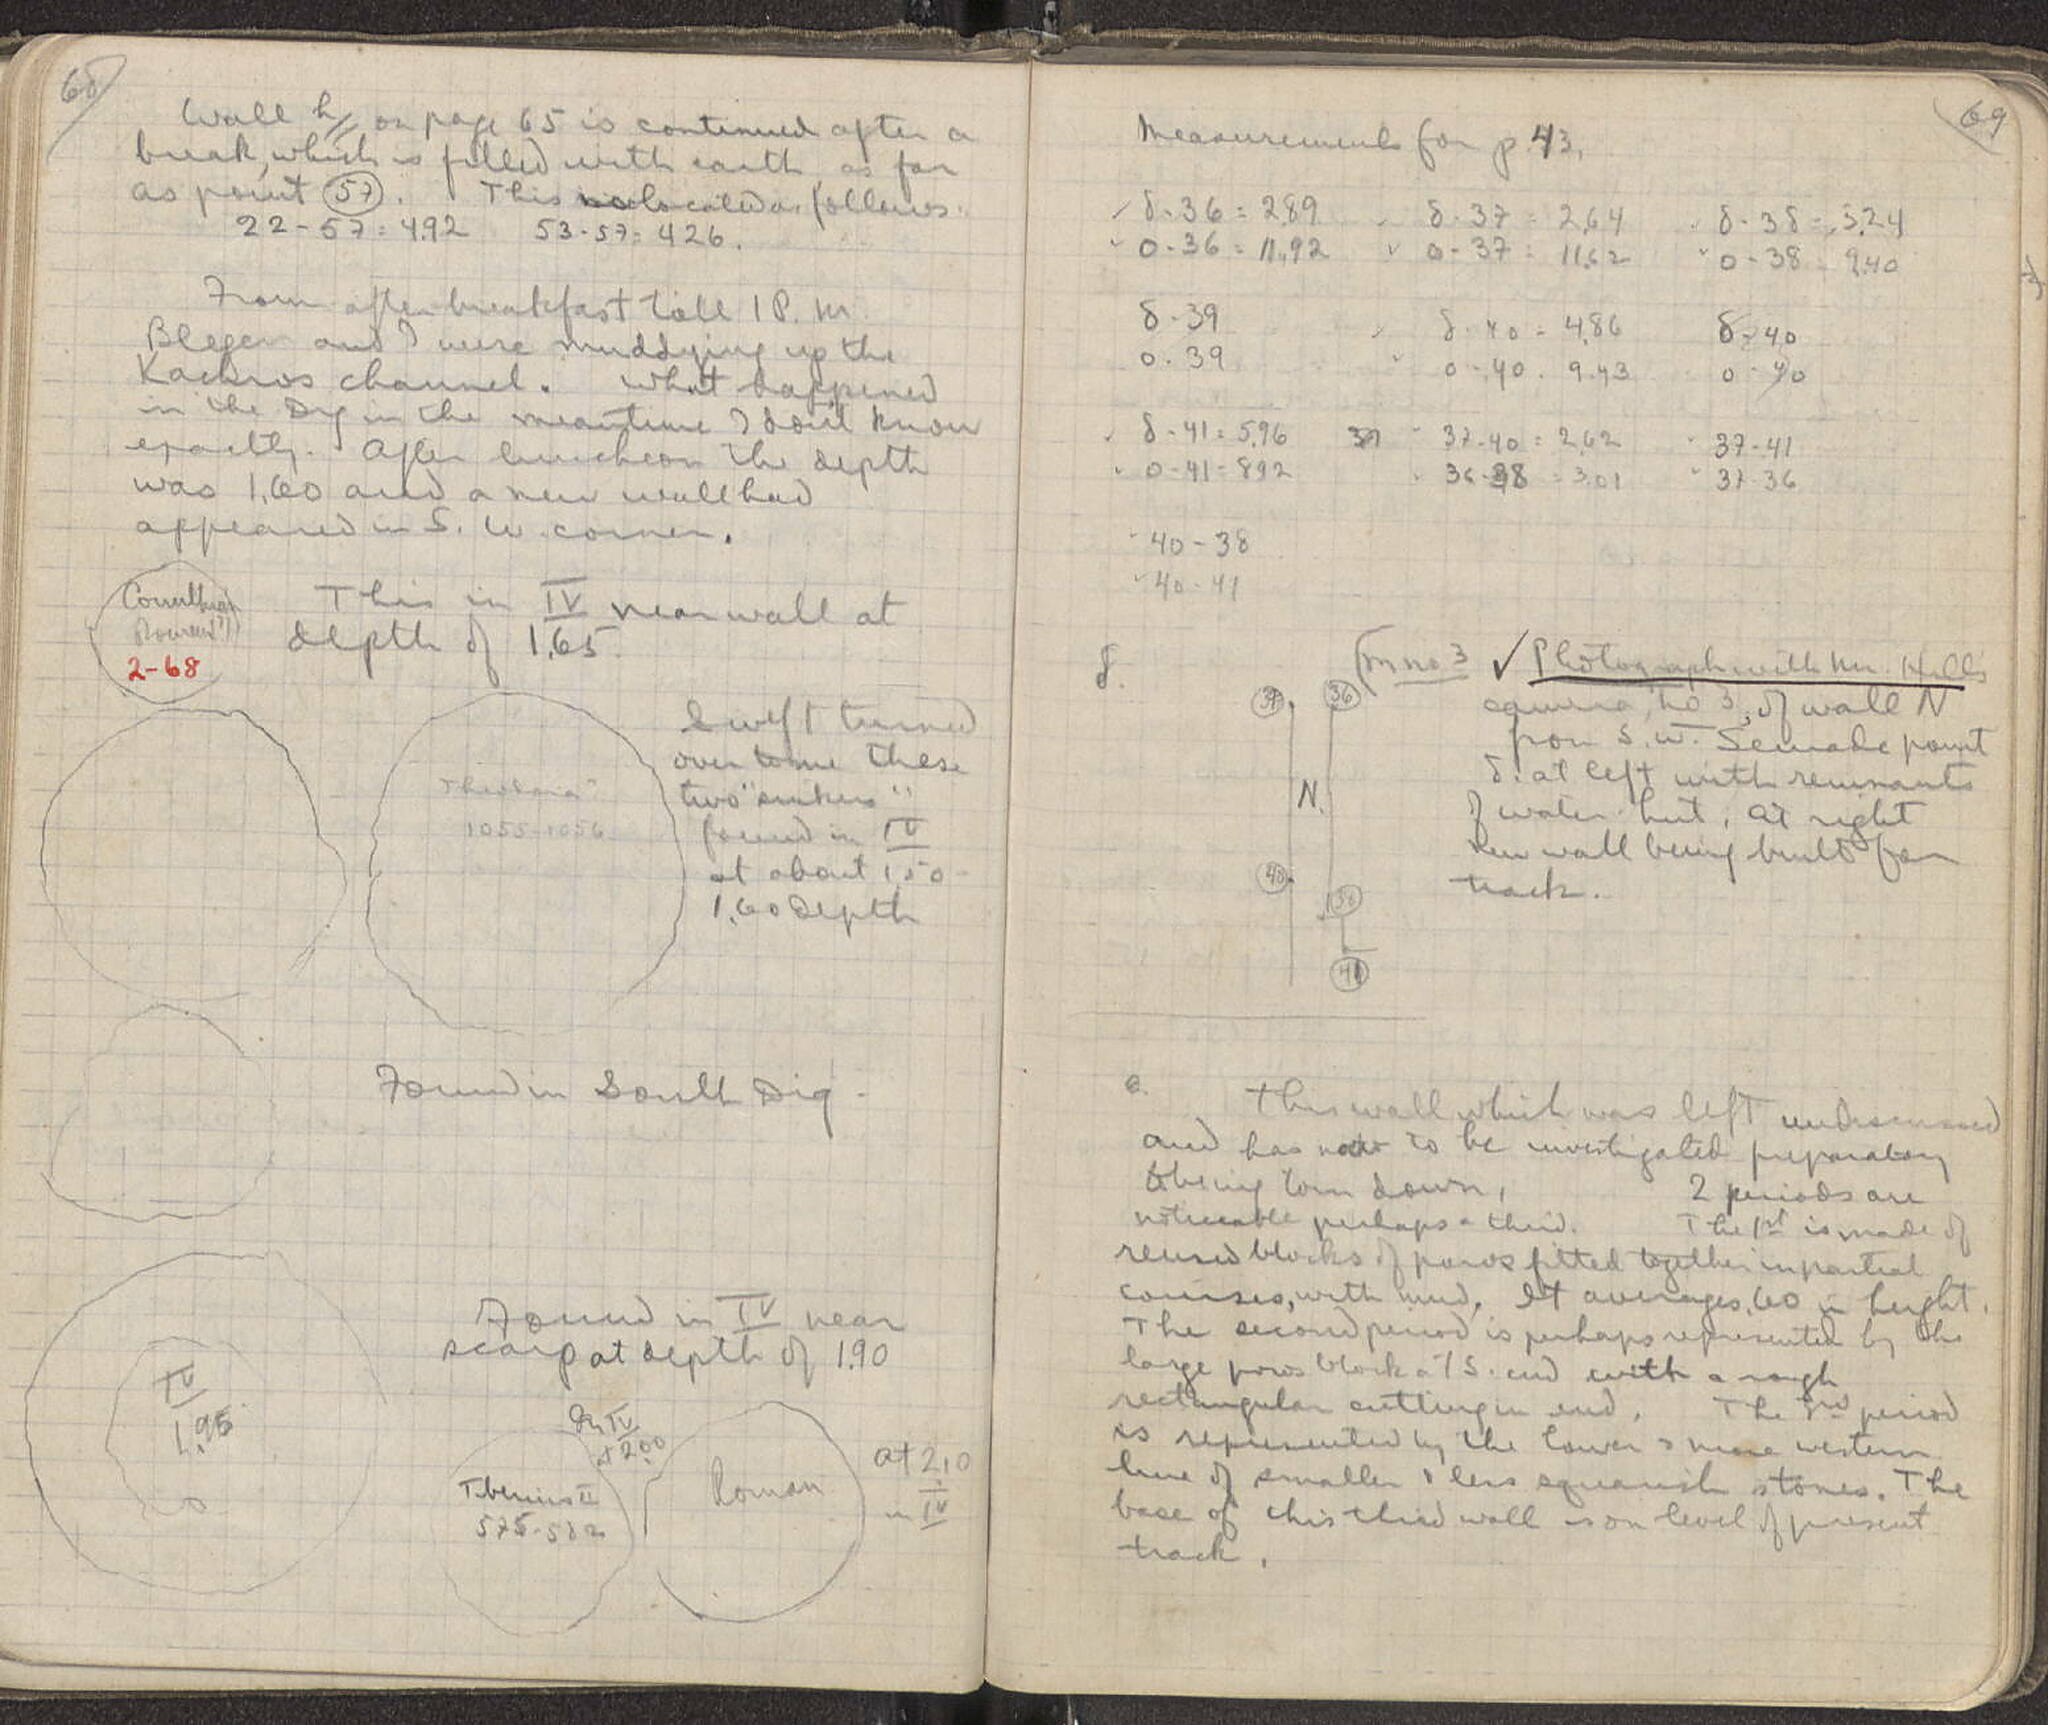 68
Wall h on page 65 is continued after a
break, which is filled with earth, as far
as point 57. This is located as follows.
22-57=4.92 53-57=426.
From after breakfast till 1 P.M.
Blegen and I were muddying up the
channel. What happened
in the Dig in the meantime I don't know
exactly. After luncheon the depth
was 1.60 and a new wall had
appeared in S.W. corner.
Corinthian
2-68
This in IV near wall at
depth of 1.65.
Swift turned
over to me these
two "sinkers"
found in IV
at about 1.50-
1.60 depth
Theodora
1055-1056
Found in South Dig.
Found in IV near
scarp at depth of 1.90
IV
1.95
In IV
at 2.00
Tiberius II
575-582
Roman
at 2.10
in IV
69
Measurements for p. 43.
δ-36=2.89 δ-37=2.64 δ-38=3.24
0-36=11.92 0-37=11.62 0-38=9.40
δ-39 δ-40=4.86 δ-40
0-39 0-40=9.43 0-40
δ-41=5.96 37-40=2.62 37-41
0-41=892 36-38=3.01 37-36
40-38
40-41
δ.
37 36
N.
40 38
41
no 3 ✓ Photograph with Mr. Hill's
camera, no 3, of wall N
from S.W. Semade point
δ. at left with remnants
of water hut, at right
new wall being built for
track.
This wall which was left
and has now to be investigated preparatory
to being torn down, 2 periods are
noticeable perhaps a third. The 1st is made of
reused blocks of poros fitted together in partial
courses, with mud. It averages .60 in height.
The second period is perhaps represented by the
large poros block at S. end with a rough
rectangular cutting in end. The 3rd period
is represented by the lower & more western
line of smaller & less squarish stones. The
base of this third wall is on level of present
track.